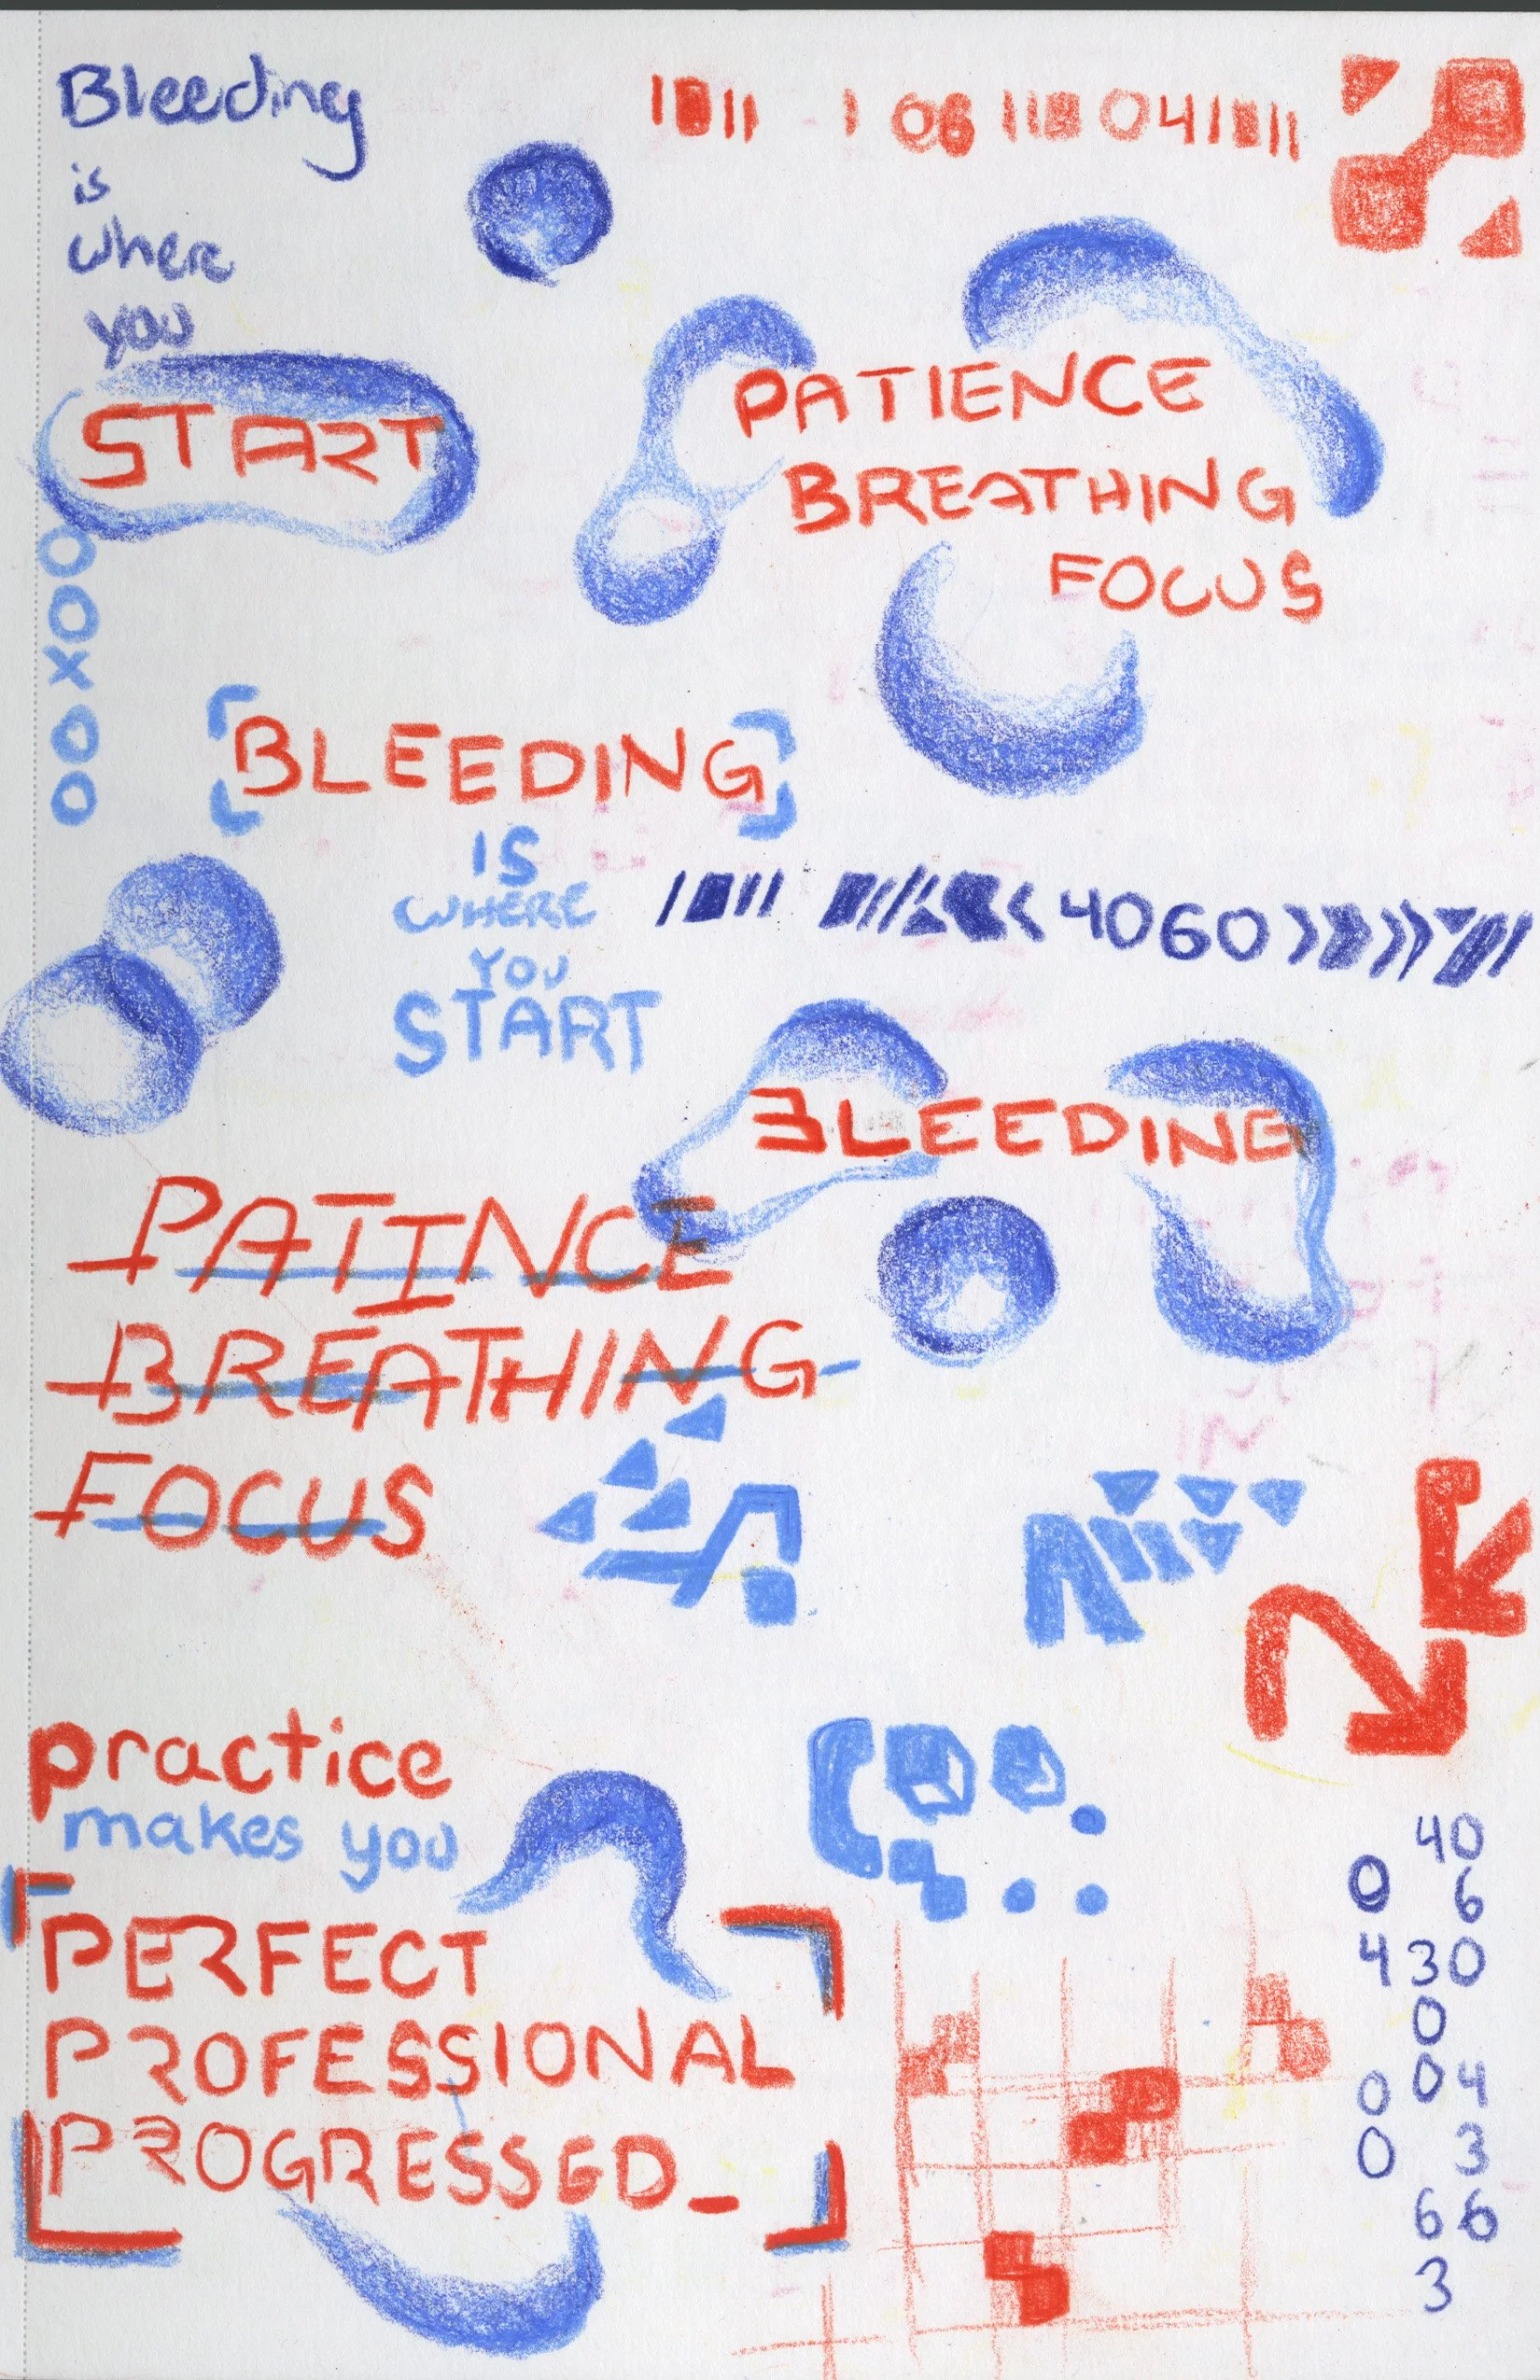 Bleeding
is
where
you
START
06 04
PATIENCE
BREATHING
FOCUS
O
O
X
O
O
BLEEDING
IS
WHERE
YOU
START
4060
BLEEDING
PATINCE
BREATHING
FOCUS
practice
makes you
PERFECT
PROFESSIONAL
PROGRESSED_
40
0 6
4 30
0
0 04
0 3
66
3